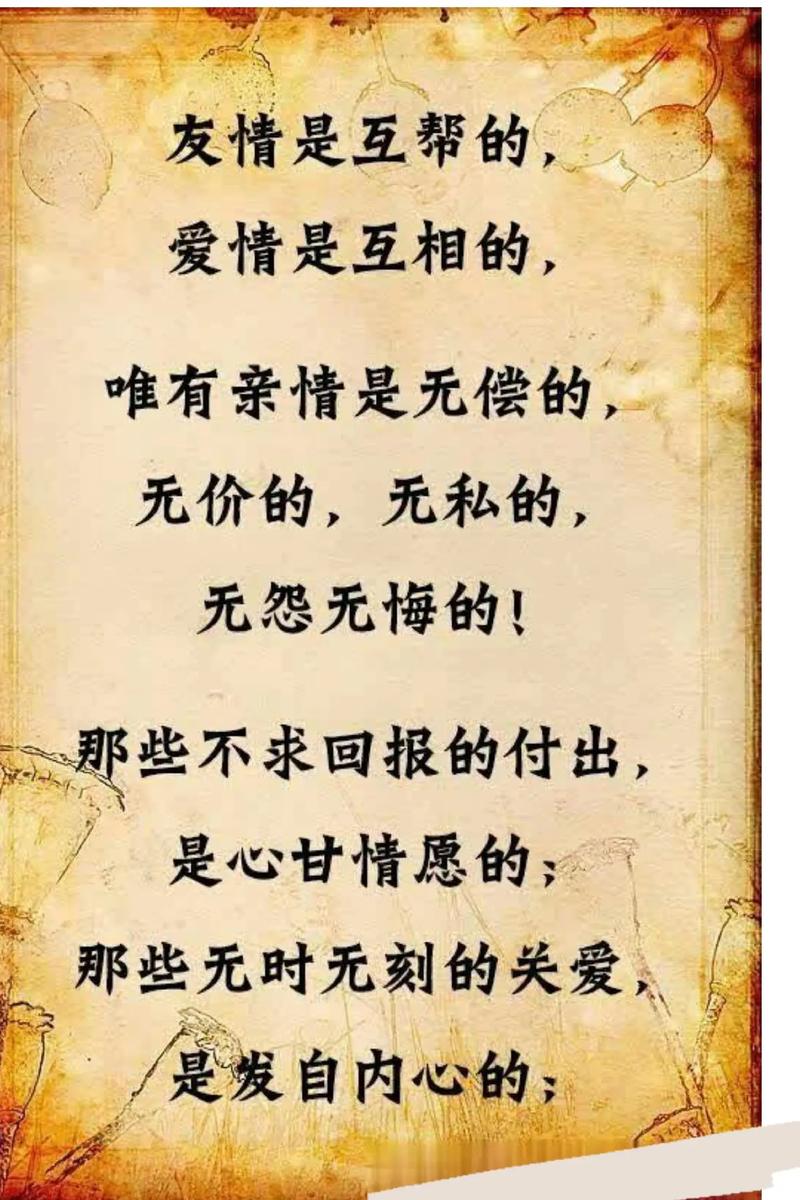 友情是互帮的，
爱情是互相的，
唯有亲情是无偿的，
无价的，无私的，
无怨无悔的！
那些不求回报的付出，
是心甘情愿的；
那些无时无刻的关爱，
是发自内心的；